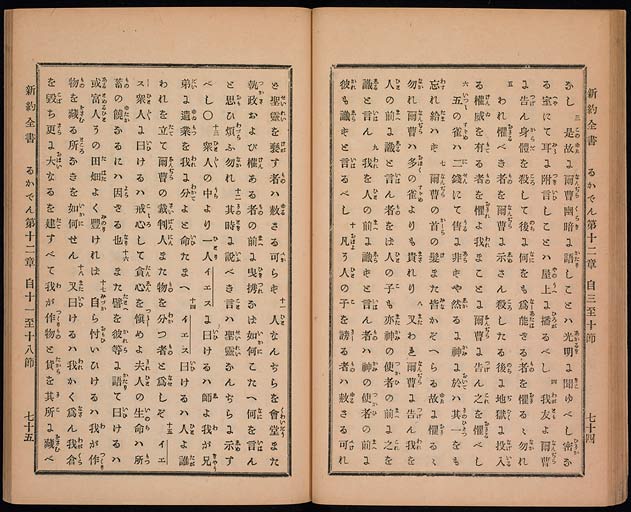 新約全書　るかでん第十二章　自三至十節　七十四
かし 三 是故に爾曹幽暗に語しことハ光明に聞ゆべし密か
る室にて耳に附言しことハ屋上に播るべし 四 我友よ爾曹
に告ん身體を殺して後に何をも爲能ざる者を懼るゝ勿れ
五 われ懼べき者を爾曹に示さん殺したる後に地獄に投入
る權威を有る者を懼よ我まことに爾曹に告ん之を懼べし
六 五の雀ハ二錢にて售に非ずや然るに神に於ハ其一をも
忘れ給ハず 七 爾曹の首の髮また皆かぞへらる故に懼るゝ
勿れ爾曹ハ多の雀よりも貴れり 八 又われ爾曹に告ん我を
人の前に識と言ん者をば人の子も亦神の使者の前に之を
識と言ん 九 我を人の前に識ずと言ん者ハ神の使者の前に
彼も識ずと言るべし 十 凡そ人の子を謗る者ハ赦さる可れ
ど聖靈を褻す者ハ赦さる可らず 十一 人なんぢらを會堂また
執政および權ある者の前に曳携るは如何こたへ何を言ん
と思ひ煩ふ勿れ 十二 其時に説べき言ハ聖靈なんぢらに示す
べし〇 十三 衆人の中より一人イエスに曰けるハ師よ我が兄
弟に遺業を我に分よと命たまへ 十四 イエス曰けるハ人よ誰
われを立て爾曹の裁判人また物を分つ者と爲しぞ 十五 イエ
ス衆人に曰けるハ戒心して貪心を愼めよ夫人の生命ハ所
蓄の饒なるにハ因ざる也 十六 また譬を彼等に語て曰けるハ
或富人その田畑よく豐ければ 十七 自ら忖いひけるハ我が作
物を藏る所なきを如何せん 十八 又曰けるハ我かく爲ん我倉
を毀ち更に大なるを建すべて我が作物と貨を其所に藏べ
新約全書　るかでん第十二章　自十一至十八節　七十五